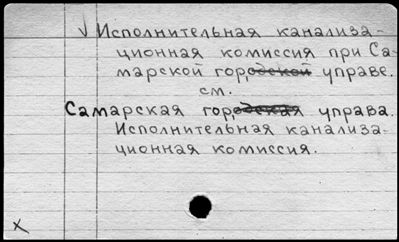 √ Исполнительная канализа-
ционная комиссия при Са-
марской городской управе.
см.
Самарская городская управа.
Исполнительная канализа-
ционная комиссия.
x